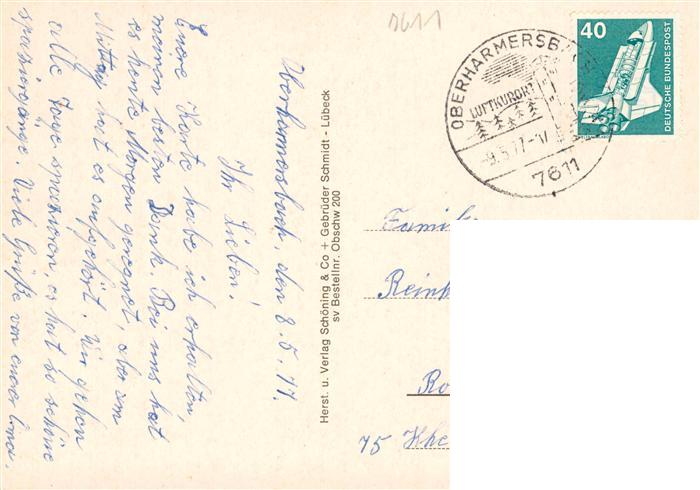 Oberharmersbach, den 8.5.77.
Ihr Lieben!
Eure Karte habe ich erhalten,
meinen besten Dank. Bei uns hat
es heute Morgen geregnet, aber am
Mittag hat es aufgehört. Wir gehen
alle Tage spazieren, es hat so schöne
spaziergänge. Viele Grüße von eurer
Herst. u. Verlag Schöning & Co + Gebrüder Schmidt - Lübeck
sv Bestellnr. Obschw 200
7611
OBERHARMERSBACH
LUFTKURORT
-9.5.77-
7611
40
DEUTSCHE BUNDESPOST
Familie
Rein
Ro
75 Khe